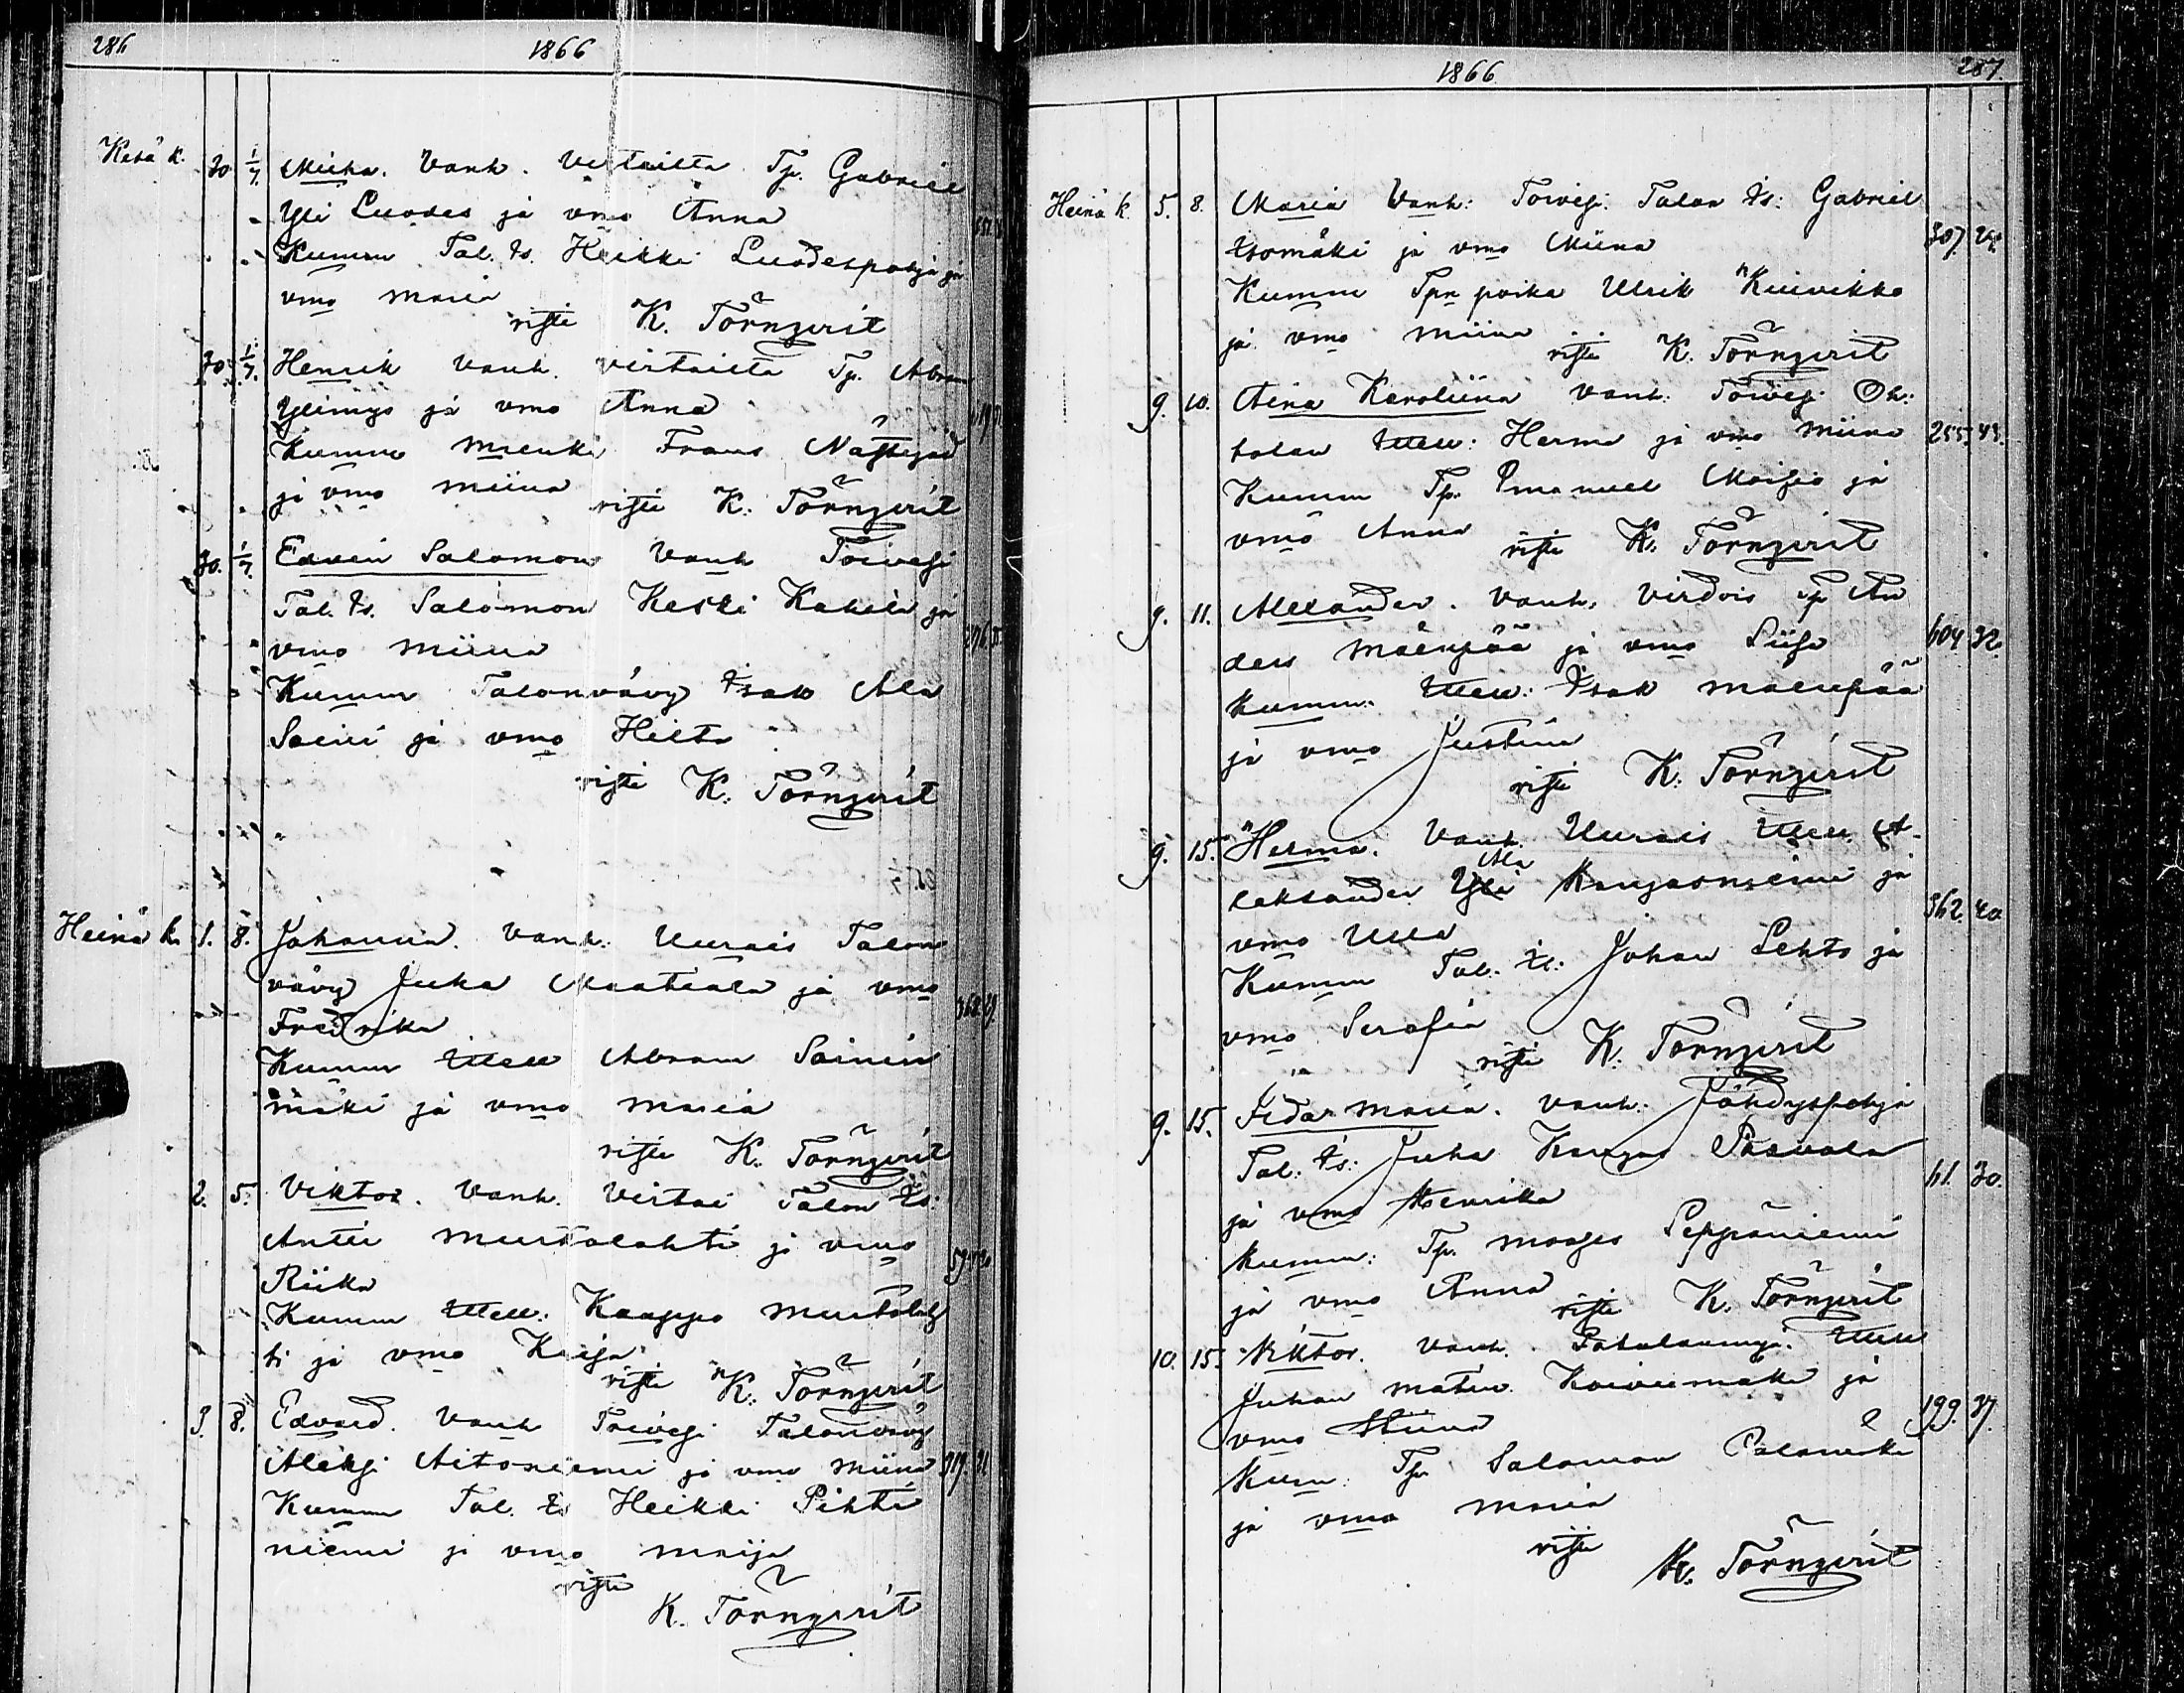 286
1866
Kesä k. 30 1/7. Miina. Vanh. Virtailta Tp. Gabriel
Yli Luodes ja vmo Anna
Kumm Tal. Is. Heikki Luodespohja ja
vmo Maria
risti K. Törnqvist
30. 1/7. Henrik Vanh. Virtailta Tp. Abram
Ylimys ja vmo Anna
Kumm Mrenki Frans
ja vmo Miina risti K. Törnqvist
30. 1/7. Edvin Salomon Vanh Toivesi
Tal. Is. Salomon Keski Kahila ja
vmo Miina
Kumm Talonvävy Isak Ala
Soini ja vmo Hilta
risti K. Törnqvist
Heinä k. 1. 8. Johanna. Vanh. Uurais Talon
vävy Juha Maatiala ja vmo
Fredrika
Kumm Itell Abram Soinin
mäki ja vmo Maria
risti K. Törnqvist
2. 5. Viktor. Vanh. Virtai Talon Is.
Antti Murtolahti ja vmo
Riika
Kumm Itell. Kaappo Murtolah
ti ja vmo Kaisa
risti K. Törnqvist
3. 8. Edvard. Vanh Toivesi Talonvävy
Aleksi Aitoniemi ja vmo Miina 319. 31
Kumm Tal. Is Heikki Pihti
niemi ja vmo Maija
risti
K. Törnqvist
1866
287
Heinä k. 5. 8. Maria Vanh: Toivesi. Talon Is: Gabriel
Isomäki ja vmo Miina 307. 24.
Kumm Tpn poika Ulrik Kuivikko
ja vmo Miina
risti K. Törnqvist
9. 10. Aina Karoliina Vanh. Toivesi Oh:
talan Itell: Herma ja vmo Miina 255. 43.
Kumm Tp. Emanuel Moisio ja
vmo Anna
risti K. Törnqvist
9. 11. Alexander. Vanh. Virdois Tp An
ders Mäenpää ja vmo Liisa 604 32
Kumm. Itell: Isak Mäenpää
ja vmo Justina
risti K. Törnqvist
9. 15. Herma. Vanh. Uurais Itell. A-
leksander Yli Ala Kangasniemi ja
362 40
vmo Ulla
Kumm Tal. Is: Johan Lehto ja
vmo Serafia
risti K. Törnqvist
9. 15. Fida Maria. Vanh: Jähdyspohja
Tal. Is: Juha Kangas Paavola
61. 30.
ja vmo Henrika
Kumm: Tp. Mooses Seppäniemi
ja vmo Anna
risti K. Törnqvist
10. 15. Viktor. Vanh. Itell
Juhan Matin. Koivumäki ja
vmo Stiina 199. 37.
Kum: Tp. Salomon Palomäki
ja vmo Maria
risti
K. Törnqvist